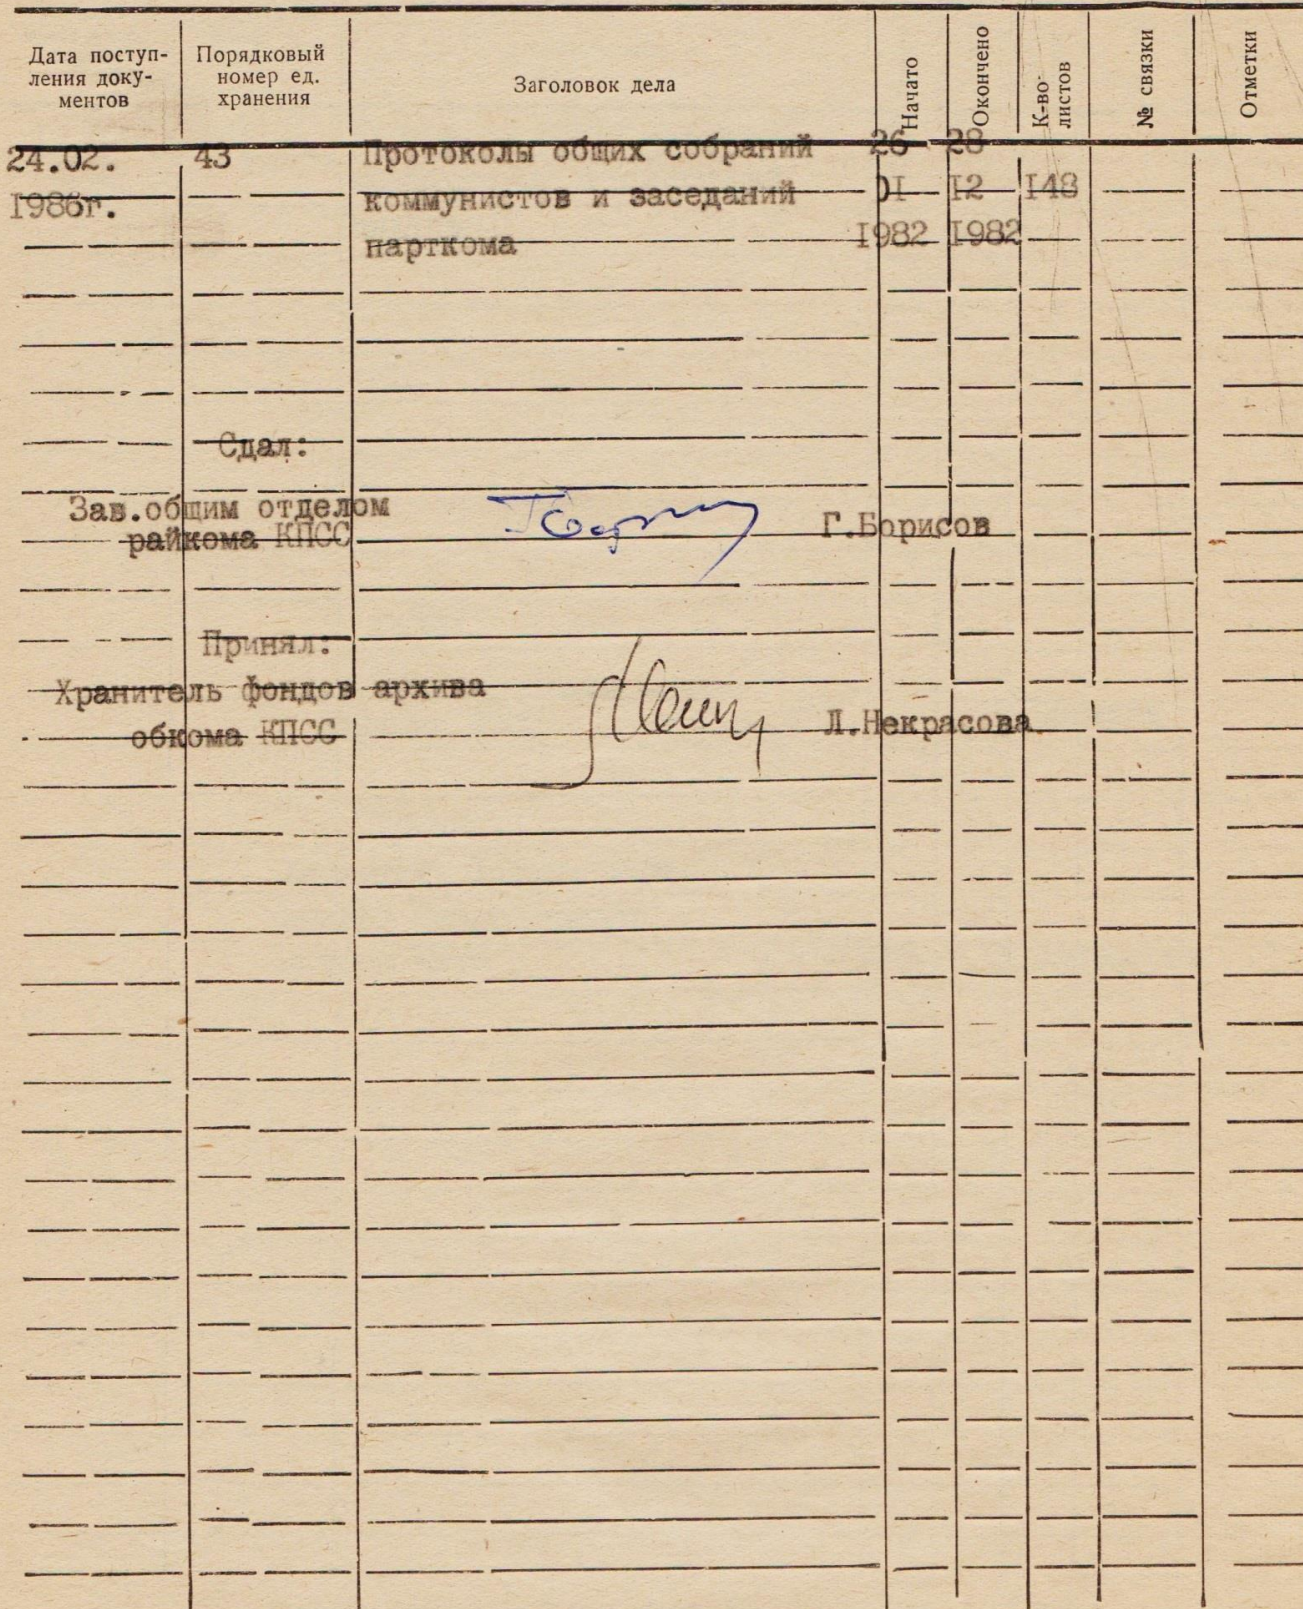 Дата поступ-
ления доку-
ментов
Порядковый
номер ед.
хранения
Заголовок дела
Начато
Окончено
К-во
листов
№ связки
Отметки
24.02. 43 Протоколы общих собраний 26 28
1986г. коммунистов и заседаний 01 12 148
парткома 1982 1982
Сдал:
Зав.общим отделом
райкома КПСС Г.Борисов
Принял:
Хранитель фондов архива
обкома КПСС Л.Некрасова.